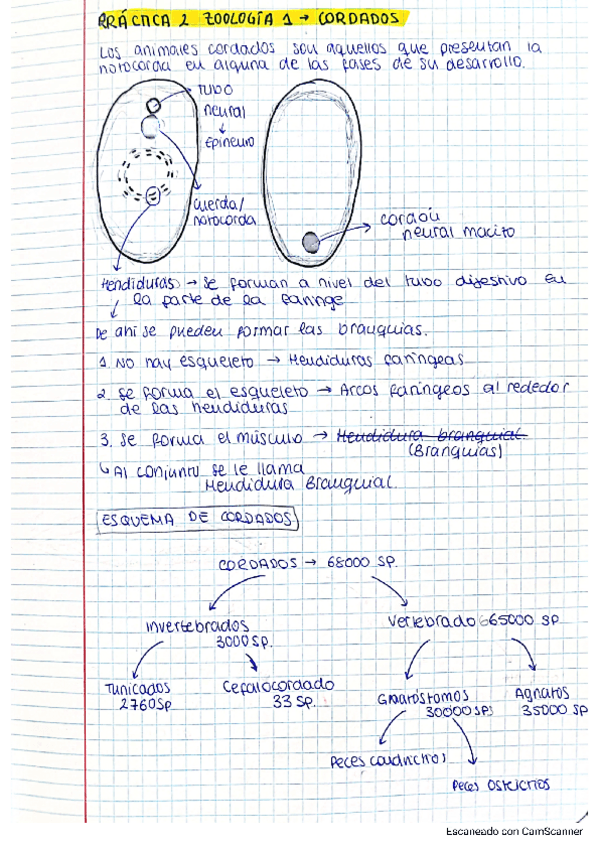 PRÁCTICA 2 ZOOLOGÍA 1 → CORDADOS
Los animales cordados son aquellos que presentan la
notocorda en alguna de las fases de su desarrollo.
tubo
neural
↓
Epineuro
cuerda/
notocorda
cordón
neural macito
Hendiduras → Se forman a nivel del tubo digestivo en
la parte de la faringe
De ahí se pueden formar las branquias.
1. No hay esqueleto → Hendiduras faríngeas
2. Se forma el esqueleto → Arcos faríngeos al rededor
de las hendiduras
3. Se forma el músculo → Hendidura branquial
(Branquias)
↳ Al conjunto se le llama
Hendidura Branquial.
ESQUEMA DE CORDADOS
CORDADOS → 68000 SP.
Invertebrados
3000 SP.
Vertebrado 665000 SP
Tunicados
2760 SP
Cefalocordado
33 SP.
Gnatóstomos
30000 SPS
Agnatos
35000 SP
Peces condrictios
Peces Osteictios
Escaneado con CamScanner